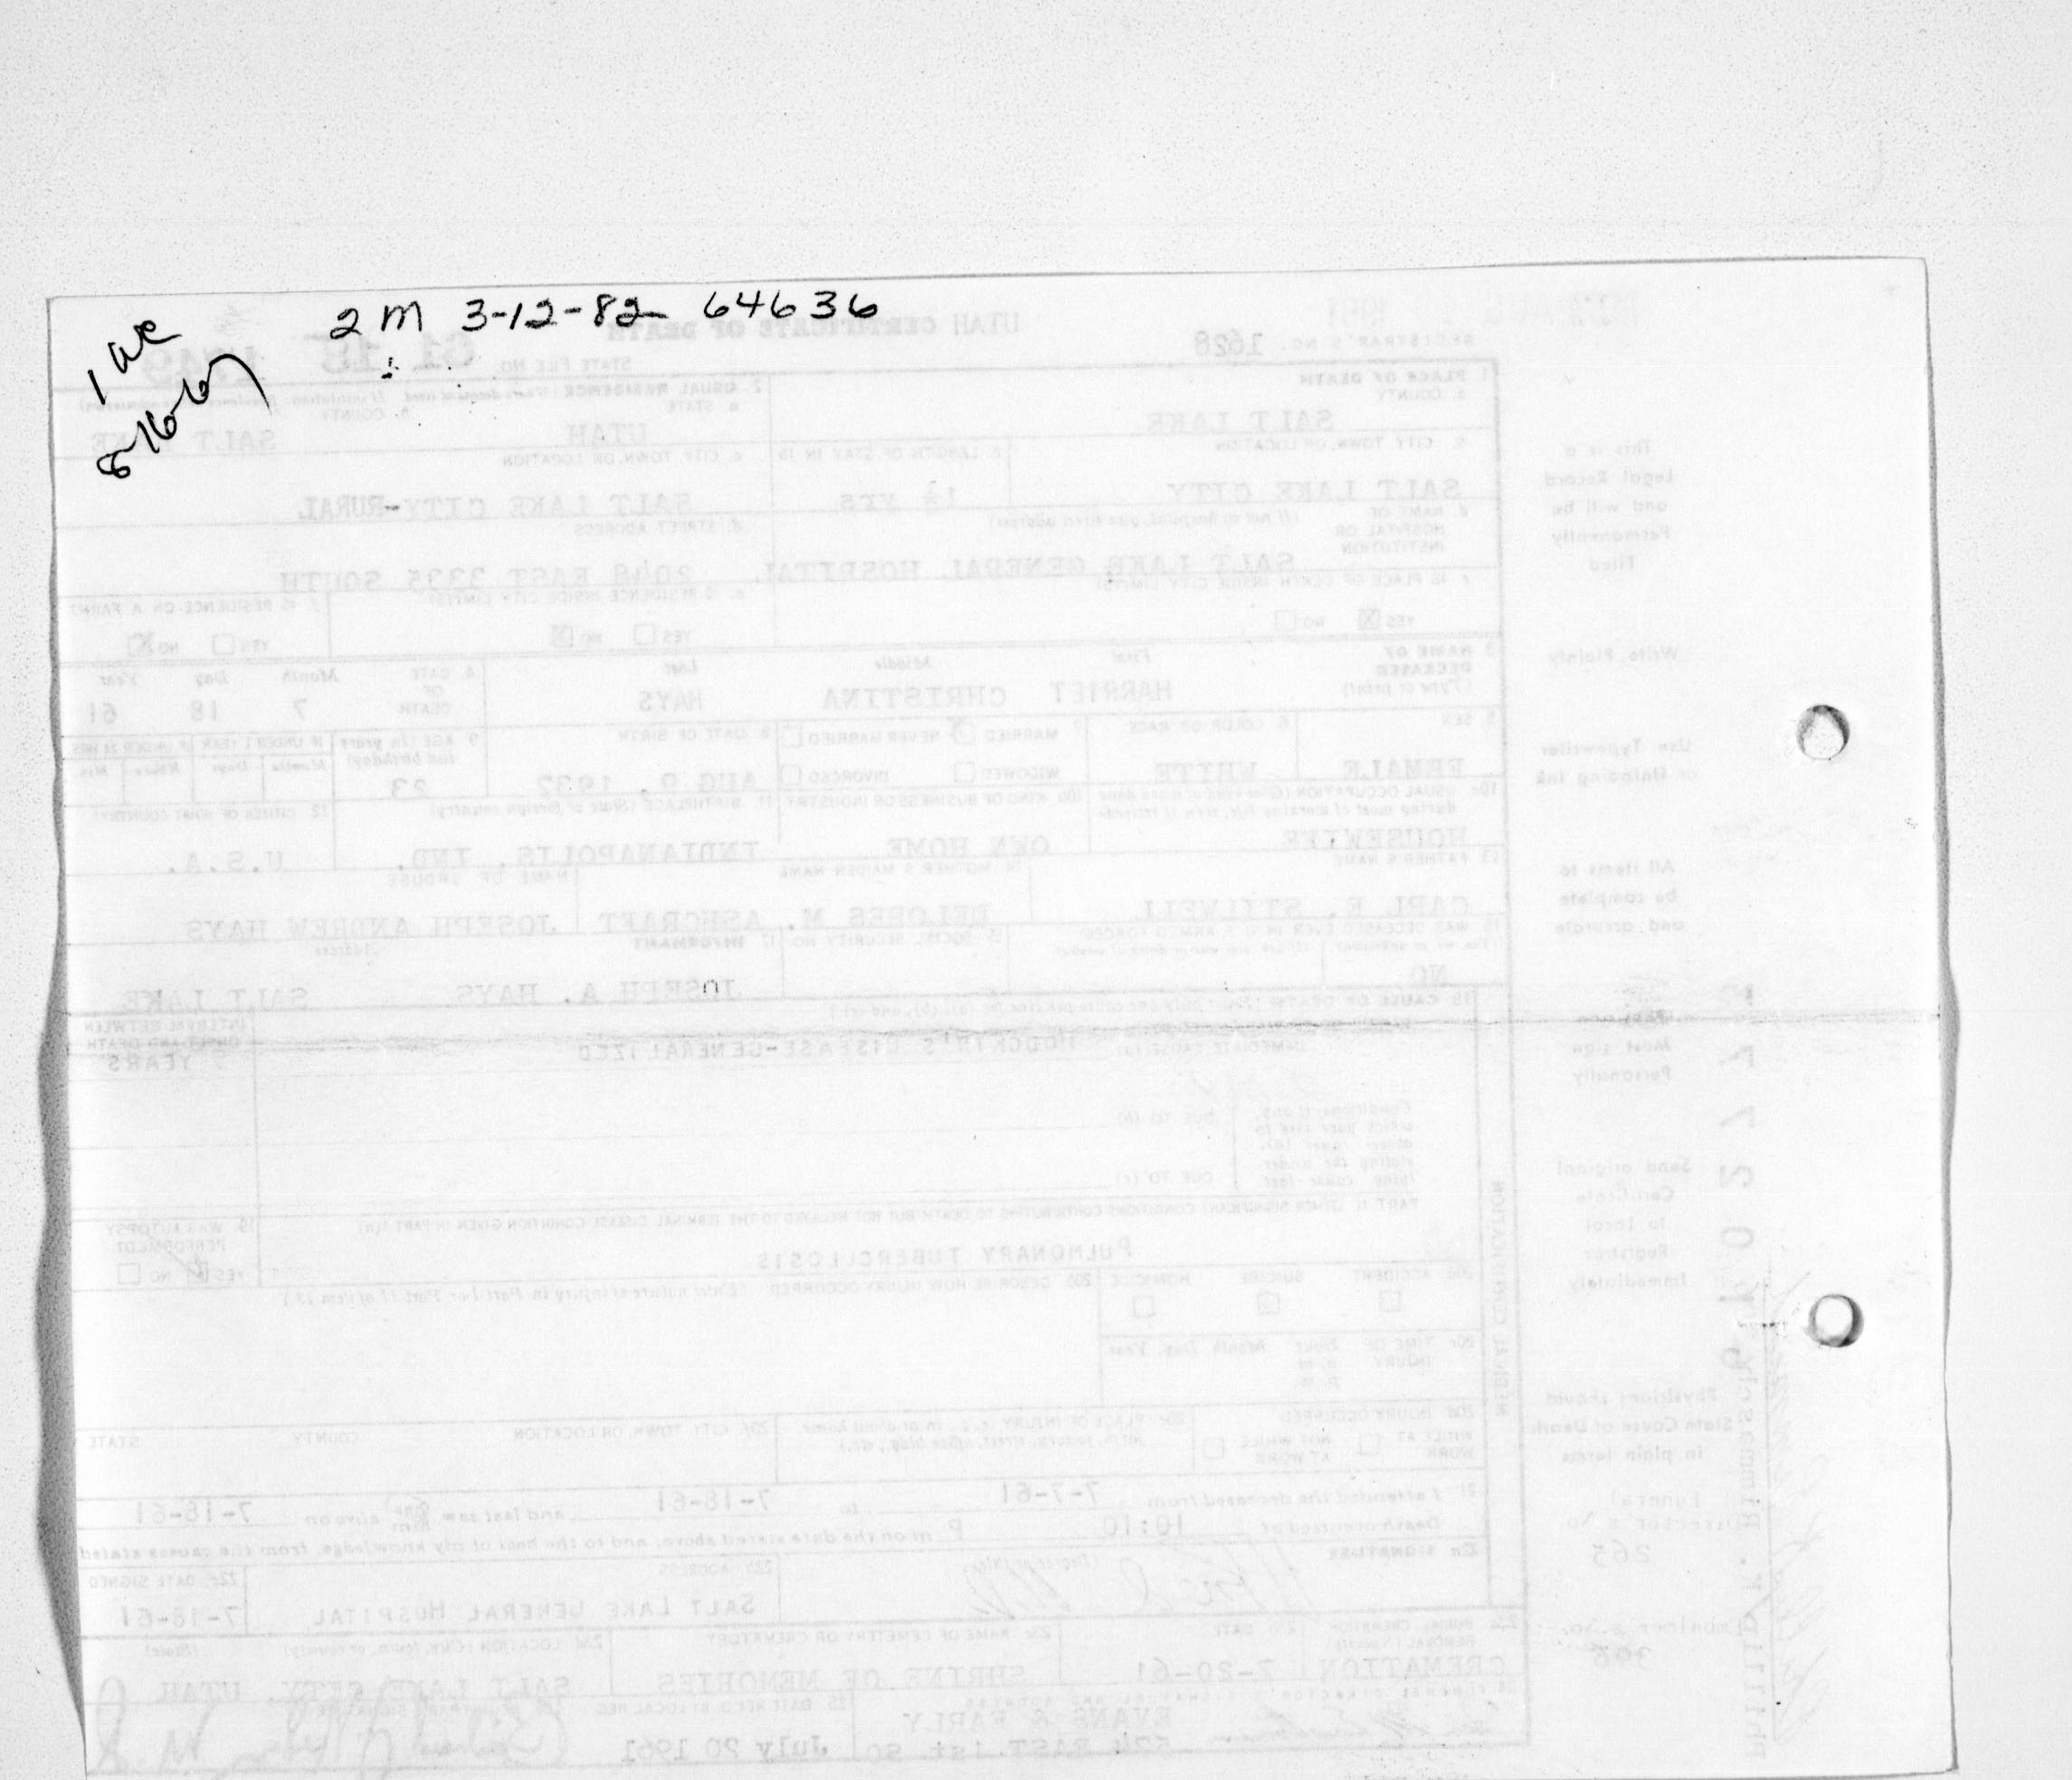 2 m 3-12-82 64636
1 we
UTAH CERTIFICATE OF DEATH
REGISTRAR'S NO. 1628
STATE FILE NO.
1. PLACE OF DEATH
a. COUNTY
SALT LAKE
2. USUAL RESIDENCE
a. STATE
UTAH
b. COUNTY
SALT LAKE
b. CITY, TOWN, OR LOCATION
SALT LAKE CITY
c. LENGTH OF STAY IN 1b
1½ yrs
c. CITY, TOWN, OR LOCATION
SALT LAKE CITY-RURAL
d. NAME OF HOSPITAL OR INSTITUTION (If not in hospital, give street address)
SALT LAKE GENERAL HOSPITAL
d. STREET ADDRESS
2048 EAST 3335 SOUTH
e. IS PLACE OF DEATH INSIDE CITY LIMITS?
YES NO
e. IS RESIDENCE INSIDE CITY LIMITS?
YES NO
f. IS RESIDENCE ON A FARM?
YES NO
3. NAME OF DECEASED (Type or print)
First Middle Last
HARRIET CHRISTINA HAYS
4. DATE OF DEATH
Month Day Year
7 18 61
5. SEX
FEMALE
6. COLOR OR RACE
WHITE
7. MARRIED NEVER MARRIED
WIDOWED DIVORCED
8. DATE OF BIRTH
AUG 9, 1937
9. AGE (In years last birthday)
23
IF UNDER 1 YEAR IF UNDER 24 HRS
Months Days Hours Min.
10a. USUAL OCCUPATION
HOUSEWIFE
10b. KIND OF BUSINESS OR INDUSTRY
OWN HOME
11. BIRTHPLACE (State or foreign country)
INDIANAPOLIS, IND.
12. CITIZEN OF WHAT COUNTRY?
U.S.A.
13. FATHER'S NAME
CARL E. STILWELL
14. MOTHER'S MAIDEN NAME
DELORES M. ASHCRAFT
NAME OF SPOUSE
JOSEPH ANDREW HAYS
15. WAS DECEASED EVER IN U.S. ARMED FORCES?
NO
16. SOCIAL SECURITY NO.
17. INFORMANT
Address
JOSEPH A. HAYS SALT LAKE
18. CAUSE OF DEATH
IMMEDIATE CAUSE (a) HODGKIN'S DISEASE-GENERALIZED
INTERVAL BETWEEN ONSET AND DEATH
YEARS
DUE TO (b)
DUE TO (c)
PART II. OTHER SIGNIFICANT CONDITIONS CONTRIBUTING TO DEATH BUT NOT RELATED TO THE TERMINAL DISEASE CONDITION GIVEN IN PART I(a)
PULMONARY TUBERCULOSIS
19. WAS AUTOPSY PERFORMED?
YES NO
20a. ACCIDENT SUICIDE HOMICIDE
20b. DESCRIBE HOW INJURY OCCURRED
20c. TIME OF INJURY Hour Month Day Year
a.m.
p.m.
20d. INJURY OCCURRED
WHILE AT WORK NOT WHILE AT WORK
20e. PLACE OF INJURY
20f. CITY, TOWN, OR LOCATION COUNTY STATE
21. I attended the deceased from 7-7-61 to 7-18-61 and last saw alive on 7-18-61
Death occurred at 10:10 P m on the date stated above, and to the best of my knowledge, from the causes stated
22a. SIGNATURE
22b. ADDRESS
SALT LAKE GENERAL HOSPITAL
22c. DATE SIGNED
7-18-61
CREMATION
7-20-61
23c. NAME OF CEMETERY OR CREMATORY
SHRINE OF MEMORIES
23d. LOCATION (City, town, or county) (State)
SALT LAKE CITY, UTAH
EVANS & EARLY
574 EAST 1st SO
July 20 1961
MEDICAL CERTIFICATION
This is a
Legal Record
and will be
Permanently
Filed
Write Plainly
Use Typewriter
or Unfading Ink
All items to
be complete
and accurate
Must sign
Personally
Send original
Certificate
to local
Registrar
Immediately
Physicians should
State Cause of Death
in plain terms
Funeral
Director's No.
265
Embalmer's No.